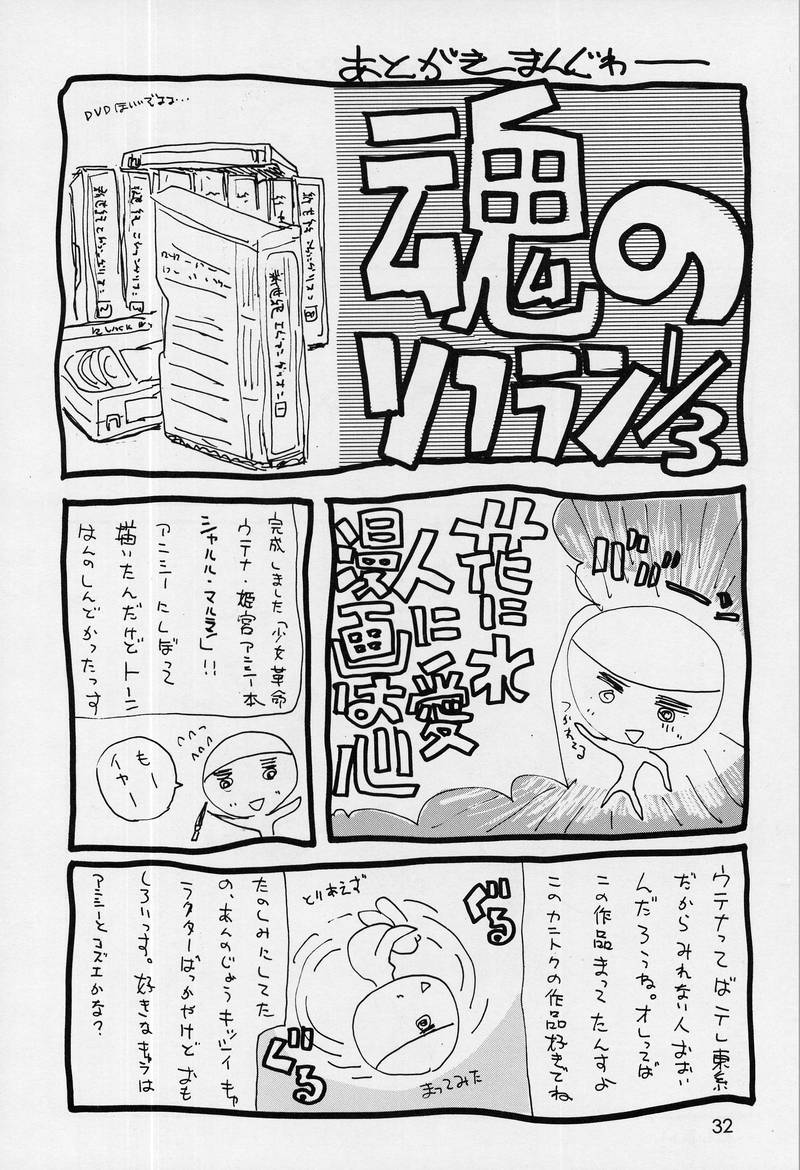 あとがきまんぐわ——
魂の
ソフラン1/3
DVDほしいでるる…
新世紀エヴァンゲリオン 1
2
3
8
BLACK
花に水
人に愛
漫画は心
バババーン
つかれてる
完成しました「少女革命
ウテナ・姫宮アンシー本
シャルル・マルラン」!!
アンシーにしぼって
描いたんだけどトーン
はんのしんどかったっす
もー
イヤー
ウテナってばテレ東系
だからみれない人おおい
んだろうね。オレってば
この作品まってたんすよ
このカントクの作品好きでね
ぐる
とりあえず
ぐる
まってみた
たのしみにしてた
の、あんのじょうキッツイキャ
ラクターばっかやけどおも
しろいっす。好きなキャラは
アンシーとコズエかな?
32